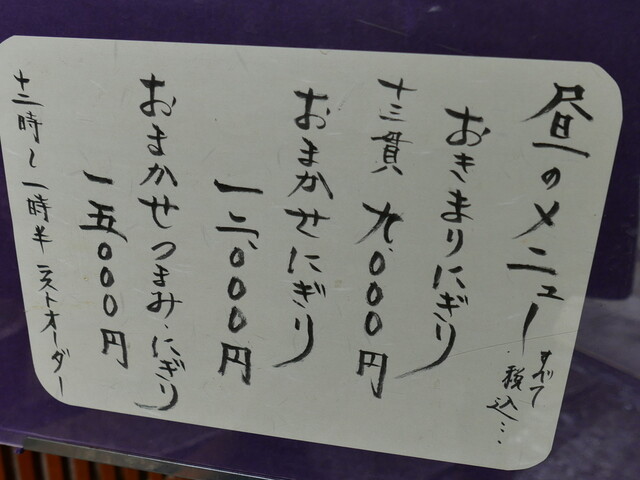 昼のメニュー
すべて
税込…
おきまりにぎり
十三貫 九、000円
おまかせにぎり
一二、000円
おまかせつまみ、にぎり
一五、000円
十二時〜一時半ラストオーダー